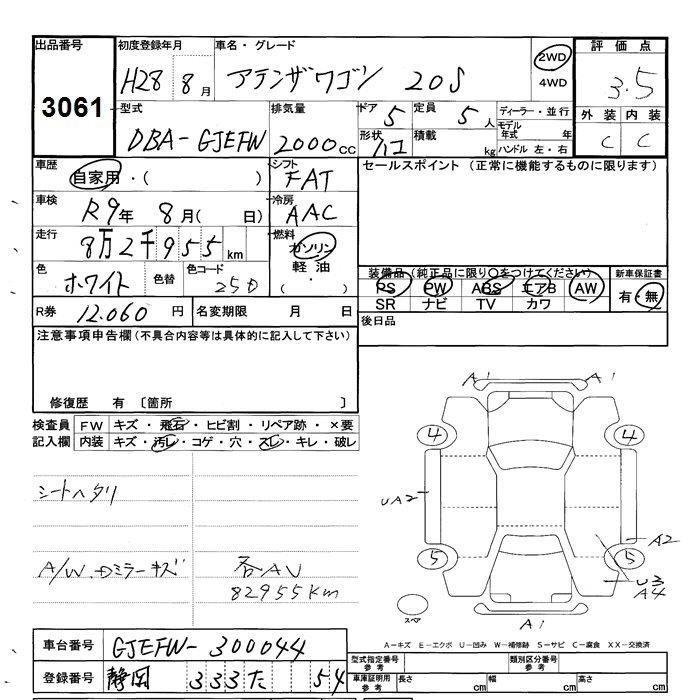 出品番号
3061
初度登録年月
H28 8月
車名・グレード
アテンザワゴン 20S
2WD
4WD
評価点
3.5
外装 内装
C C
型式
DBA-GJEFW
排気量
2000cc
ドア 5
定員 5人
形状
積載 kg
ディーラー・並行
モデル年式 年
ハンドル 左・右
車歴
自家用・( )
シフト
FAT
セールスポイント (正常に機能するものに限ります)
車検
R9年 8月( 日)
冷房
AAC
走行
8万2千955km
燃料
ガソリン
軽油
( ・ )
色
ホワイト
色替
色コード
25D
装備品(純正品に限り○をつけてください)
PS PW ABS エアB AW
SR ナビ TV カワ
新車保証書
有・無
R券 12,060円
名変期限 月 日
後日品
注意事項申告欄(不具合内容等は具体的に記入して下さい)
修復歴 有 〔箇所 〕
検査員記入欄
FW キズ・飛石・ヒビ割・リペア跡・×要
内装 キズ・汚レ・コゲ・穴・スレ・キレ・破レ
シートヘタリ
A/W、Dミラーキズ
各AU
82955km
A1 A1
4 4
UA2
A2
5 5
U3
A4
スペア
A1
A-キズ E-エクボ U-凹み W-補修跡 S-サビ C-腐食 XX-交換済
車台番号
GJEFW-300044
登録番号
静岡 333 た 54
型式指定番号
参考
類別区分番号
参考
車庫証明用
参考
長さ cm
幅 cm
高さ cm